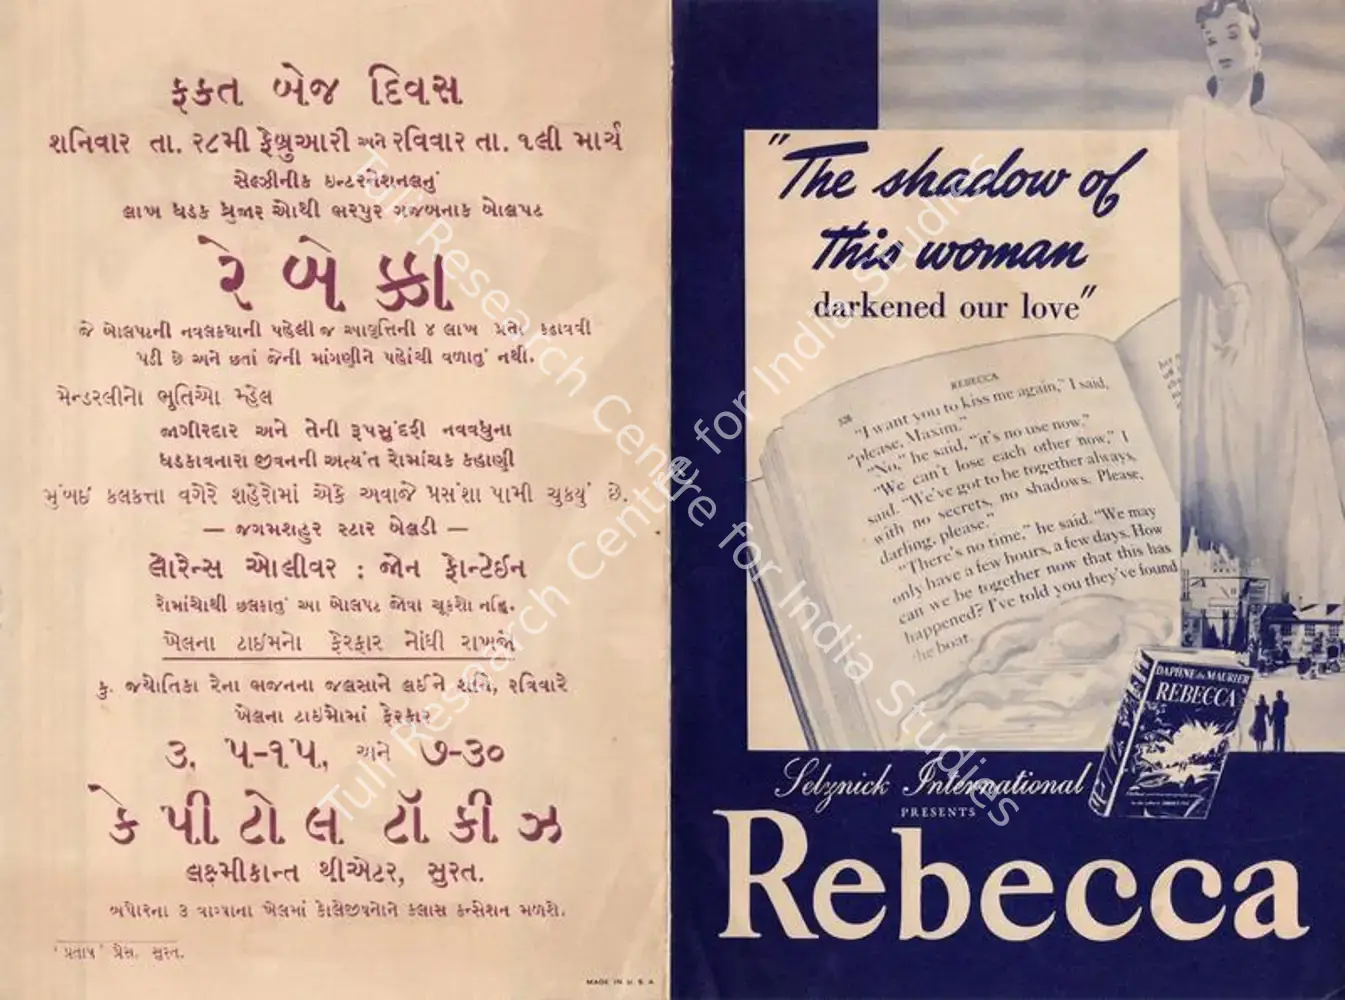 ફકત બેજ દિવસ
શનિવાર તા. ૨૮મી ફેબ્રુઆરી અને રવિવાર તા. ૧લી માર્ચ
સેલ્ઝીનીક ઇન્ટરનેશનલનું
લાખ ધડક ધુજાર ઓથી ભરપુર ગજબનાક બોલપટ
રે બે ક્કા
જે બોલપટની નવલકથાની પહેલી જ આવૃત્તિની ૪ લાખ પ્રતો કઢાવવી
પડી છે અને છતાં જેની માંગણીને પહોંચી વળાતું નથી.
મેન્ડરલીનો ભુતિઓ મ્હેલ
જાગીરદાર અને તેની રૂપસુંદરી નવવધુના
ધડકાવનારા જીવનની અત્યંત રોમાંચક કહાણી
મુંબઈ કલકત્તા વગેરે શહેરોમાં એકે અવાજે પ્રસંશા પામી ચુકયું છે.
— જગમશહુર સ્ટાર બેલડી —
લોરેન્સ ઓલીવર : જોન ફોન્ટેઈન
રોમાંચોથી છલકાતું આ બોલપટ જોવા ચૂકશો નહિ.
ખેલના ટાઈમનો ફેરફાર નોંધી રાખજો
કુ. જ્યોતિકા રૈના ભજનના જલસાને લઈને શનિ, રવિવારે
ખેલના ટાઈમોમાં ફેરફાર
૩, ૫-૧૫, અને ૭-૩૦
કે પી ટો લ ટૉ કી ઝ
લક્ષ્મીકાન્ત થીએટર, સુરત.
બપોરના ૩ વાગ્યાના ખેલમાં કોલેજીયનોને ક્લાસ કન્સેશન મળશે.
'પ્રતાપ' પ્રેસ. સુરત.
MADE IN U. S. A.
"The shadow of
this woman
darkened our love"
REBECCA
328
"I want you to kiss me again," I said,
"please, Maxim."
"No," he said, "it's no use now."
"We can't lose each other now," I
said. "We've got to be together always,
with no secrets, no shadows. Please,
darling, please."
"There's no time," he said. "We may
only have a few hours, a few days. How
can we be together now that this has
happened? I've told you they've found
the boat.
DAPHNE du MAURIER
REBECCA
Selznick International
PRESENTS
Rebecca
Tuli Research Centre for India Studies
Tuli Research Centre for India Studies